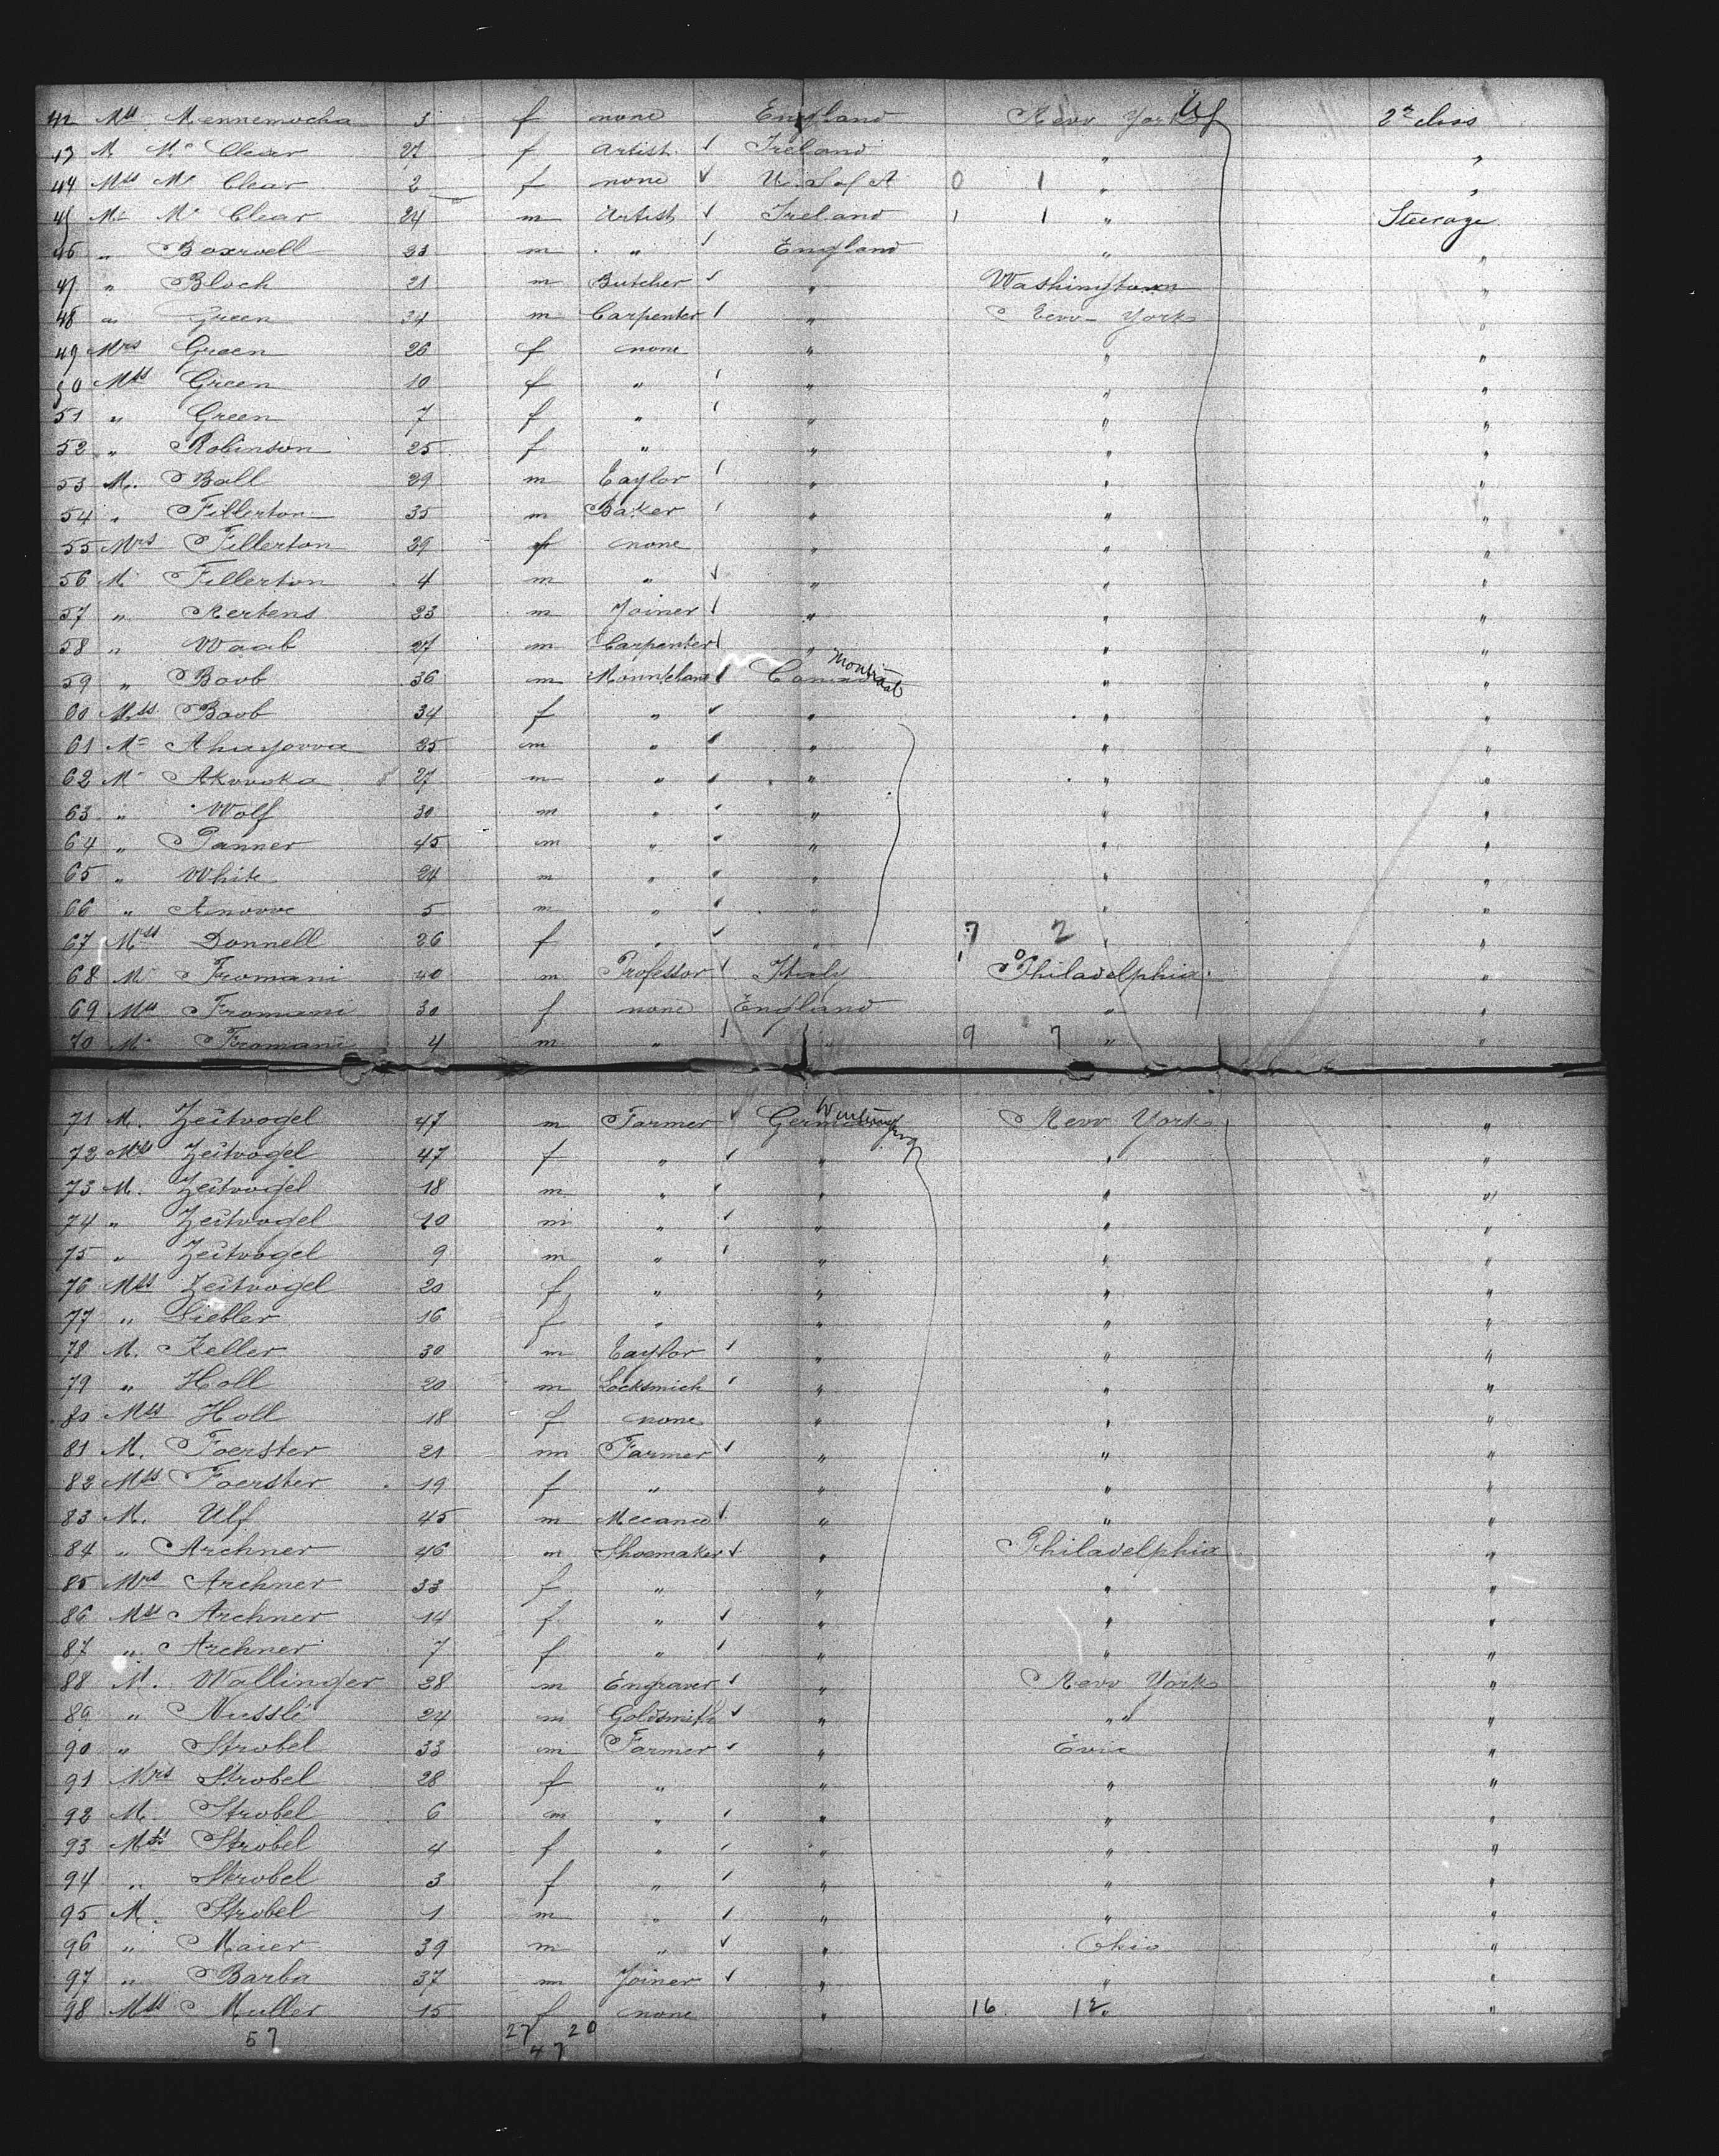 42 Mss Mennemocha 3 f none England New York 2d class
43 M Mc Clear 27 f Artist Ireland " "
44 Mss Mc Clear 2 f none U. S of A 0 1 " "
45 Mr Mc Clear 24 m Artist Ireland 1 1 " Steerage
46 " Boxwell 33 m " England " "
47 " Bloch 21 m Butcher " Washington "
48 " Green 34 m Carpenter " New York "
49 Mrs Green 26 f none " " "
50 Mss Green 10 f " " " "
51 " Green 7 f " " " "
52 " Robinson 25 f " " " "
53 M. Ball 29 m Taylor " " "
54 " Fillerton 35 m Baker " " "
55 Mrs Fillerton 29 f none " " "
56 M Fillerton 4 m " " " "
57 " Mertens 23 m Joiner " " "
58 " Waab 27 m Carpenter " " "
59 " Boob 36 m Canada Montreal " "
60 Mss Boob 34 f " " " "
61 Mr 25 m " " " "
62 M Akvoka 27 m " " " "
63 " Wolf 30 m " " " "
64 " Panner 45 m " " " "
65 " White 24 m " " " "
66 " 5 m " " " "
67 Mss Donnell 26 f " " 7 2 " "
68 M Fromani 40 m Professor Italy 1 0 Philadelphia "
69 Mss Fromani 30 f none England " "
70 M Fromani 4 m " " 9 7 " "
71 M. Zeitvogel 47 m Farmer Germany New York "
72 Mss Zeitvogel 47 f " " " "
73 M. Zeitvogel 18 m " " " "
74 " Zeitvogel 10 m " " " "
75 " Zeitvogel 9 m " " " "
76 Mss Zeitvogel 20 f " " " "
77 " Siebler 16 f " " " "
78 M. Keller 30 m Taylor " " "
79 " Holl 20 m Locksmich " " "
80 Mss Holl 18 f none " " "
81 M. Foerster 21 m Farmer " " "
82 Mss Foerster 19 f " " " "
83 M. Ulf 45 m Mecanic " " "
84 " Archner 46 m Shoemaker " Philadelphia "
85 Mrs Archner 33 f " " " "
86 Mss Archner 14 f " " " "
87 " Archner 7 f " " " "
88 M. Wallinger 28 m Engraver " New York "
89 " Nussle 24 m Goldsmith " " "
90 " Strobel 33 m Farmer " Evie "
91 Mrs Strobel 28 f " " " "
92 M. Strobel 6 m " " " "
93 Mss Strobel 4 f " " " "
94 " Strobel 3 f " " " "
95 M. Strobel 1 m " " " "
96 " Maier 39 m " " Ohio "
97 " Barba 37 m Joiner " " "
98 Mss Muller 15 f none " 16 12 "
57 27 20
47